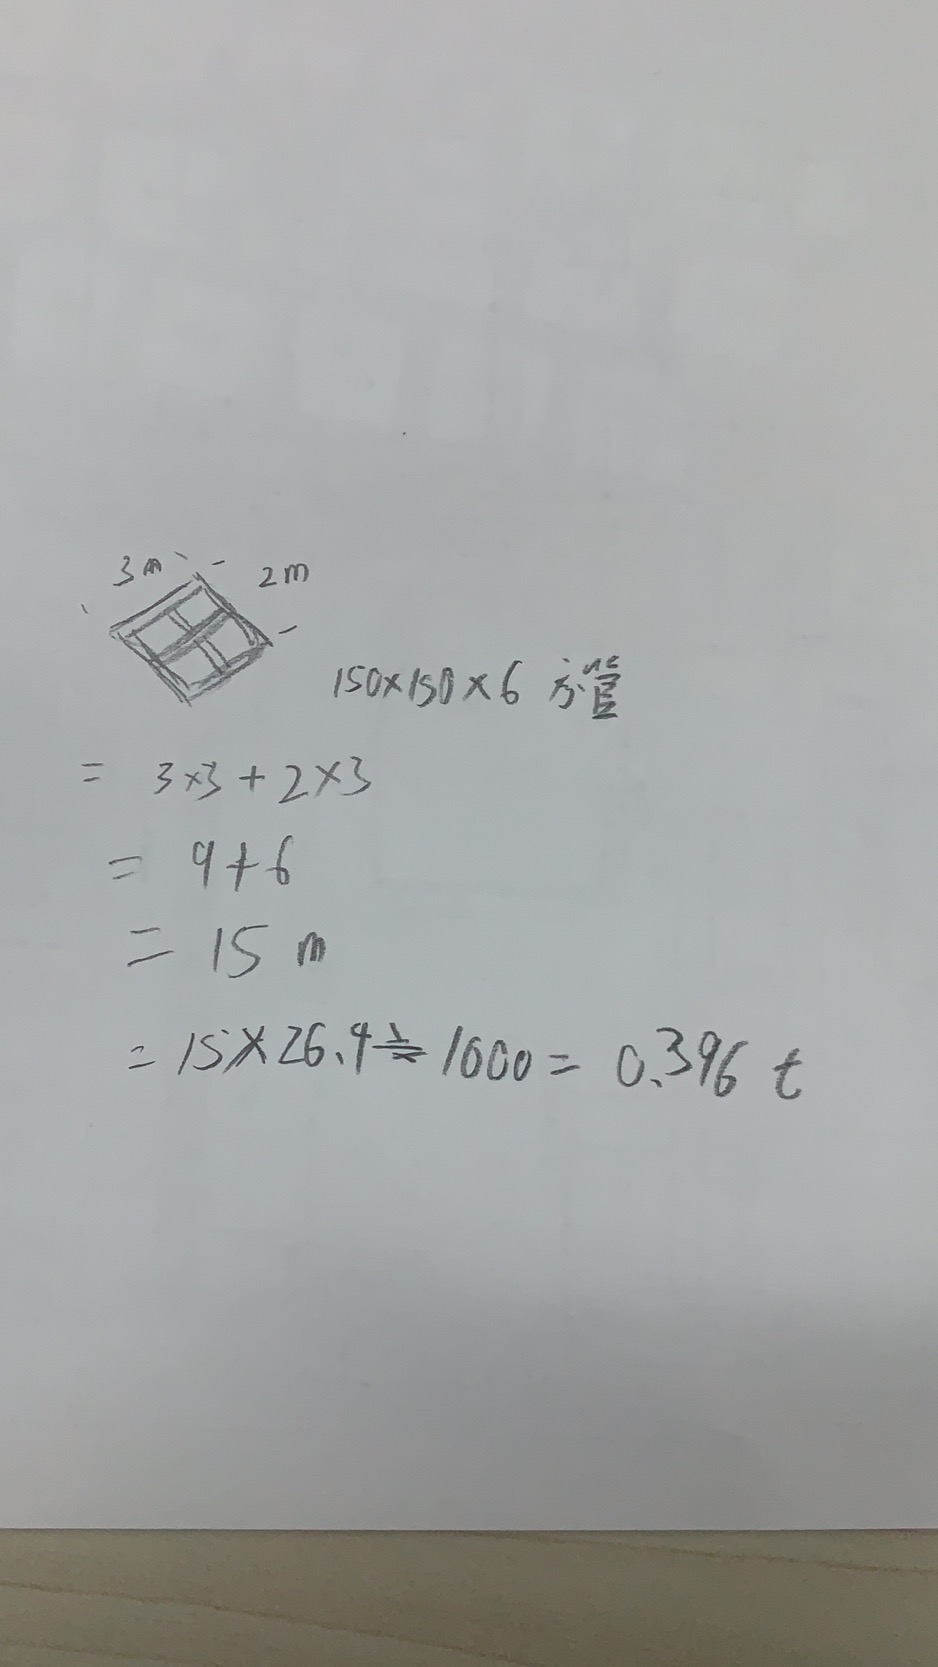 3m 2m
150×150×6 方管
= 3×3+2×3
= 9+6
= 15 m
= 15×26.4÷1000 = 0.396 t